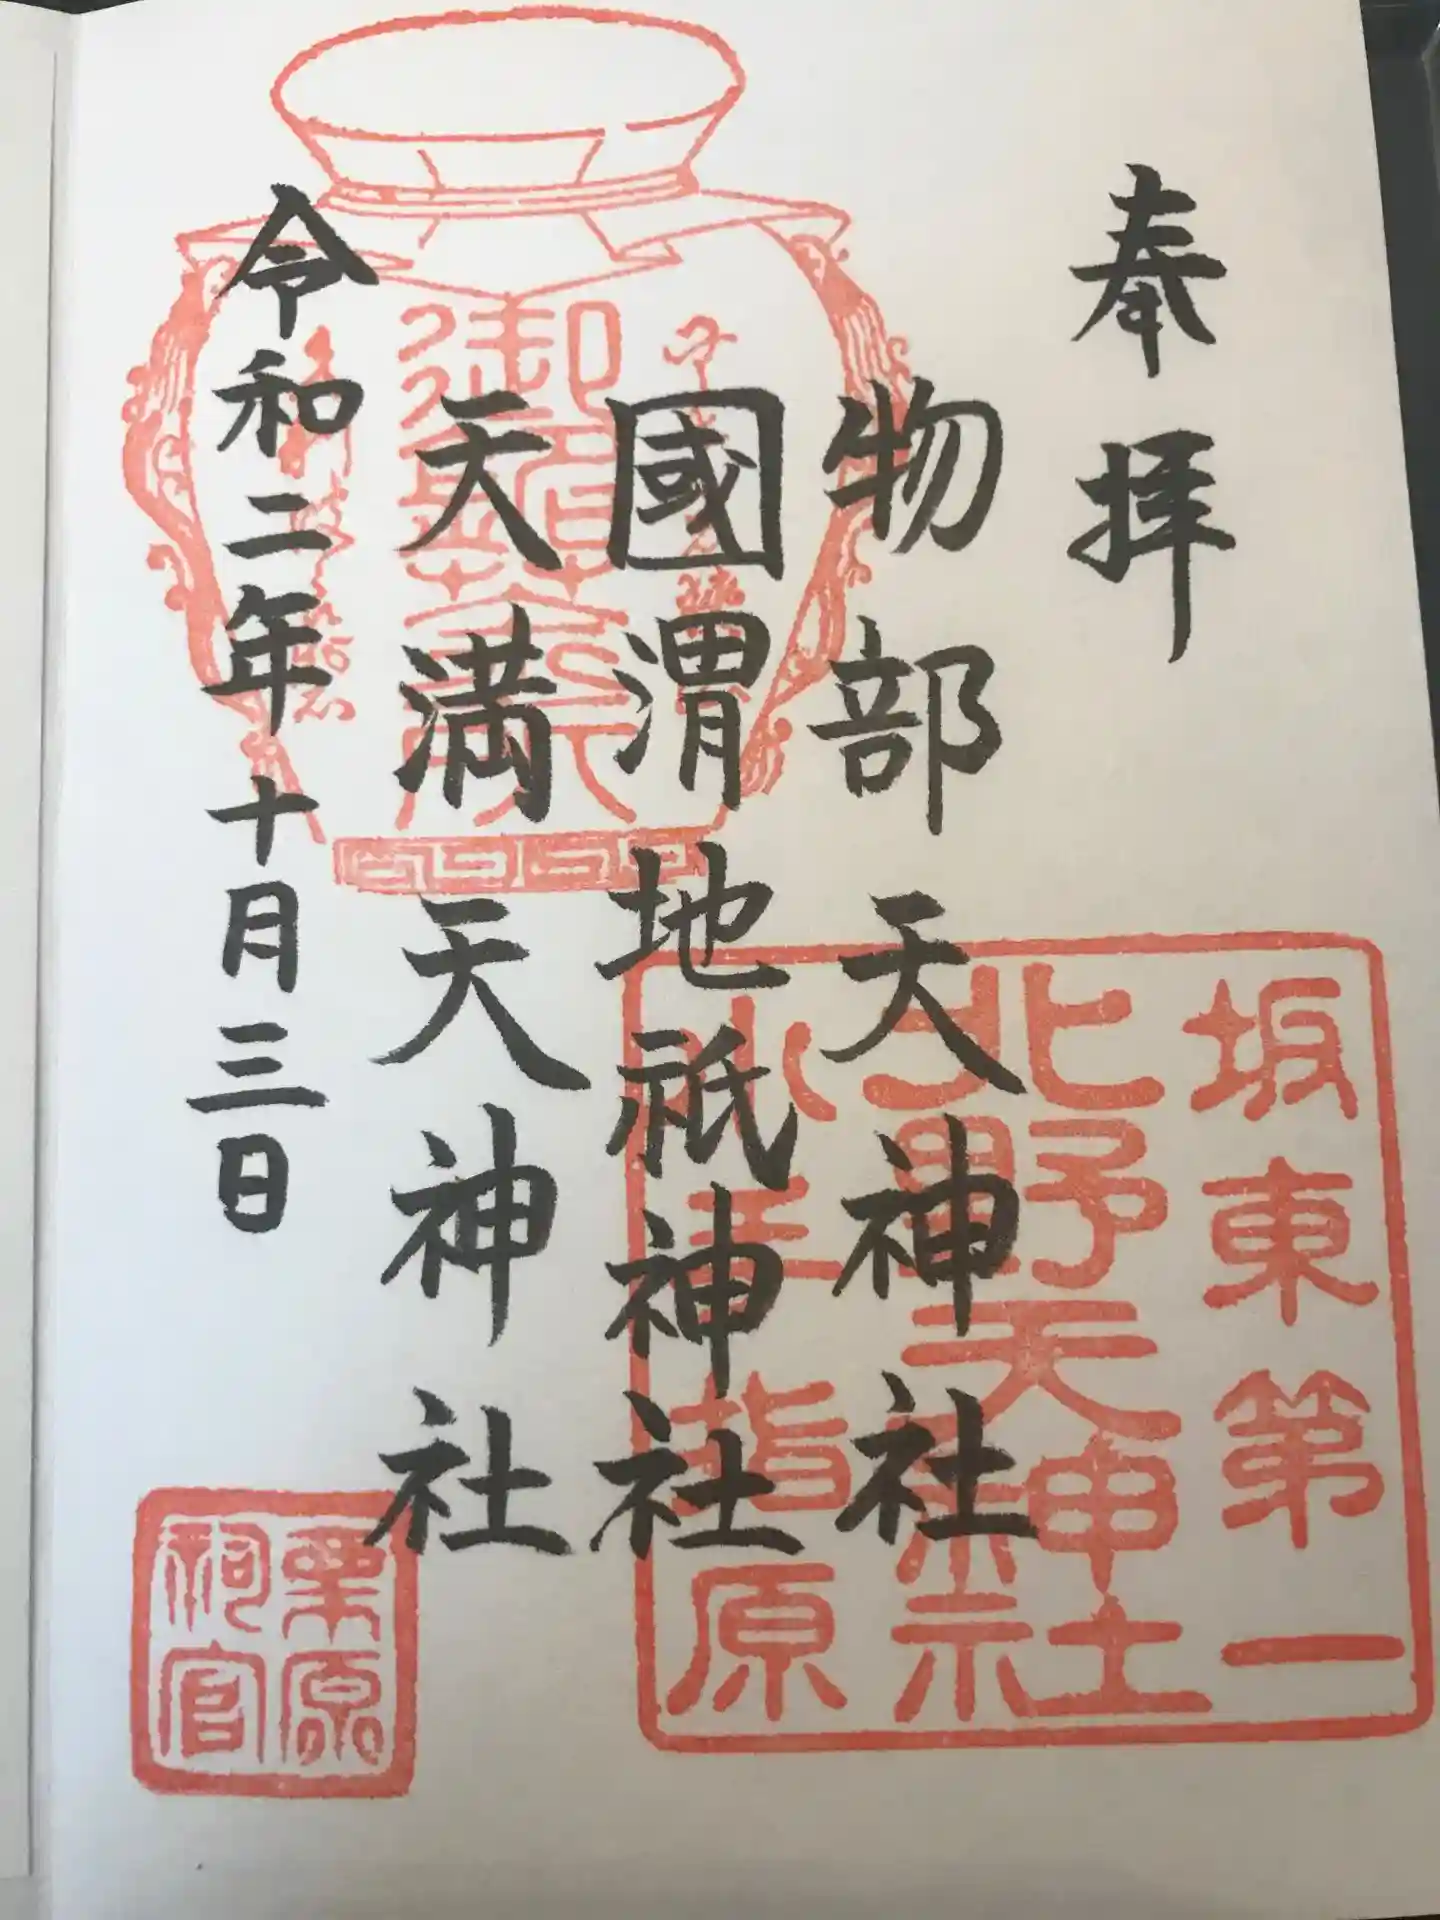 奉拝
物部天神社
國渭地祇神社
天満天神社
令和二年十月三日
坂東第一
北野天神社
小手指原
栗原
祠官